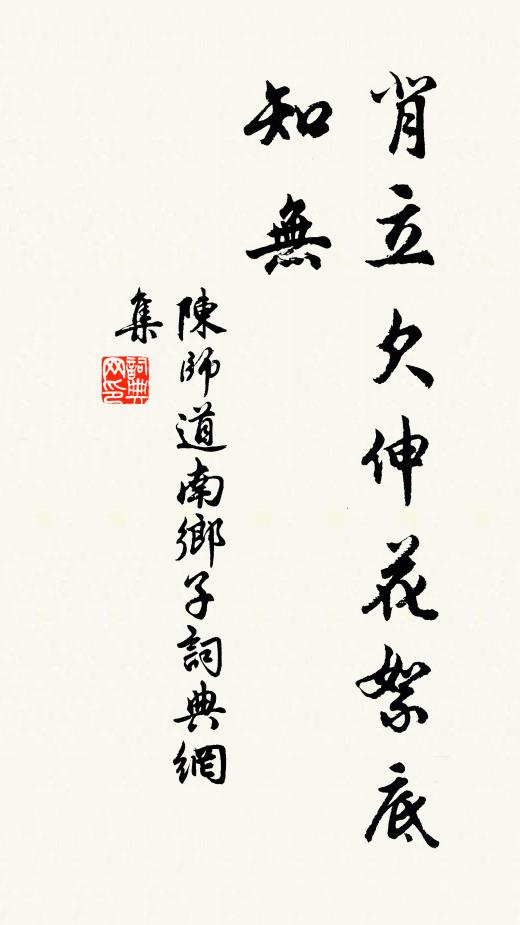 肖立欠伸花絮底
知無
陳師道南鄉子詞典網
集
詞典網印